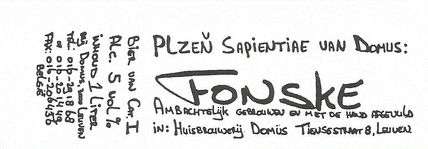 PLZEŇ SAPIENTIAE VAN DOMUS:
FONSKE
AMBACHTELIJK GEBROUWEN EN MET DE HAND AFGEVULD
IN: HUISBROUWERIJ DOMUS TIENSESTRAAT 8, LEUVEN
BIER VAN CAT. I
INHOUD 1 LITER
ALC. 5 VOL %
BIJ DOMUS, 3000 LEUVEN
TEL: 016-20 14 49
FAX: 016-206436
BELGIË